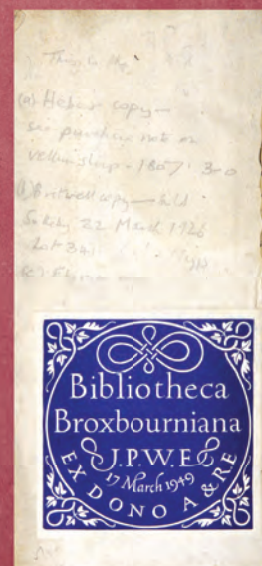 This is the
(a) Heber copy —
see purchase note on
vellum slip - 1807 : 3-0
(b) Britwell copy — sold
Sotheby 22 March 1926
Lot 341
Bibliotheca
Broxbourniana
J.P.W.E
17 March 1949
EX DONO A & RE